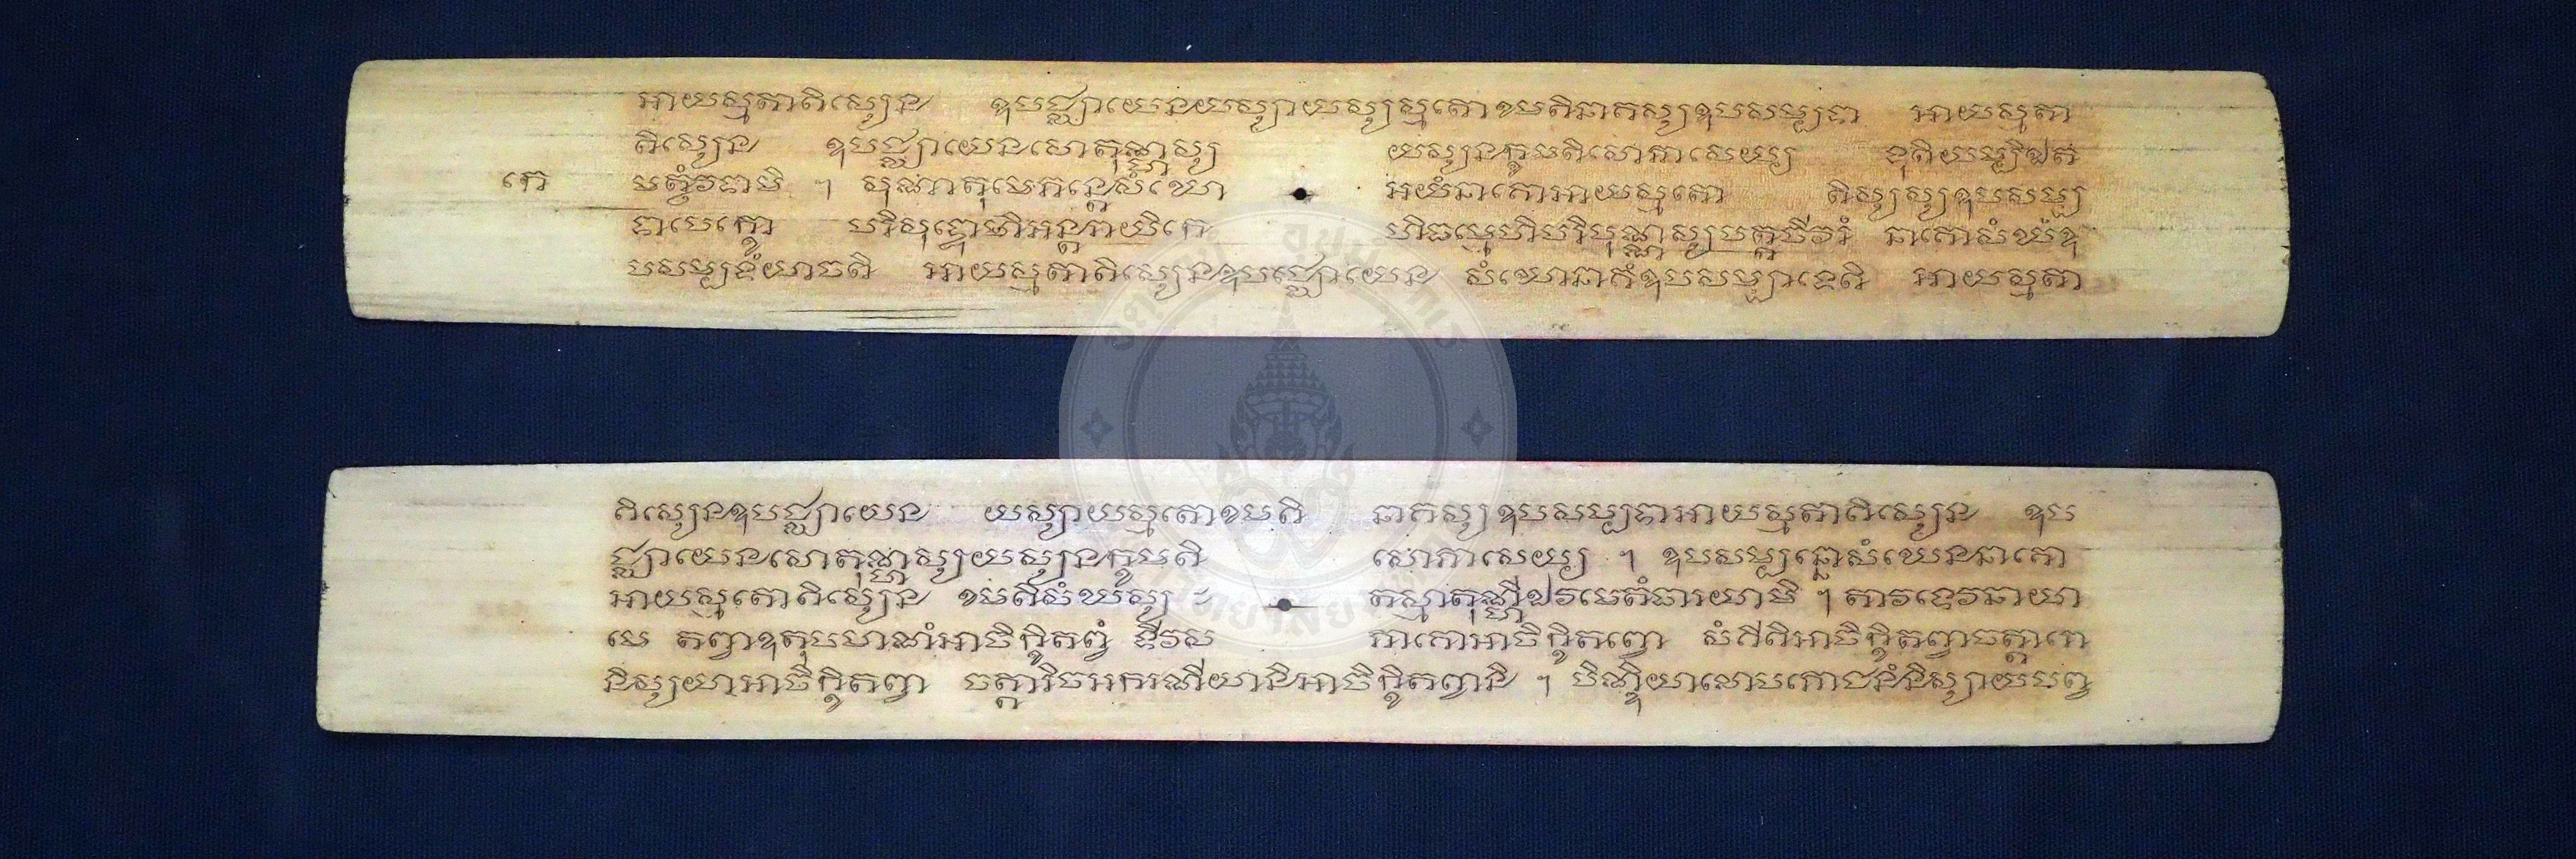 អាយស្មតាតិស្សេន ឧបជ្ឈាយេនយស្សាយស្សស្មតោខមតិនាគស្សឧបសម្បទា អាយស្មតា
តិស្សេន ឧបជ្ឈាយេនសោតុណ្ហស្ស យស្សនក្ខមតិសោភាសេយ្យ ទុតិយម្បិឯត
កេ មត្ថំវទាមិ ។ សុណាតុមេភន្តេសំឃោ អយំនាគោអាយស្មតោ តិស្សស្សឧបសម្ប
ទាបេក្ខោ បរិសុទ្ធោតិអន្តរាយិកេ ហិធម្មេហិបរិបុណ្ណស្សបត្តចីវរំ នាគោសំឃំឧ
បសម្បទំយាចតិ អាយស្មតាតិស្សេនឧបជ្ឈាយេន សំឃោនាគំឧបសម្បាទេតិ អាយស្មតា
តិស្សេនឧបជ្ឈាយេន យស្សាយស្មតោខមតិ នាគស្សឧបសម្បទាអាយស្មតាតិស្សេន ឧប
ជ្ឈាយេនសោតុណ្ហស្សយស្សនក្ខមតិ សោភាសេយ្យ ។ ឧបសម្បន្នោសំឃេននាគោ
អាយស្មតោតិស្សេន ខមតិសំឃស្ស តស្មាតុណ្ហីឯវមេតំធារយាមិ ។ តាវទេវឆាយា
មេ តព្វាឧតុបមាណំអាចិក្ខិតព្វំ ទិវស ភាគោអាចិក្ខិតព្វោ សំគីតិអាចិក្ខិតព្វាចត្តារោ
និស្សយាអាចិក្ខិតព្វា ចត្តារិចអករណីយានិអាចិក្ខិតព្វានិ ។ បិណ្ឌិយាលោបភោជនំនិស្សាយបព្វ